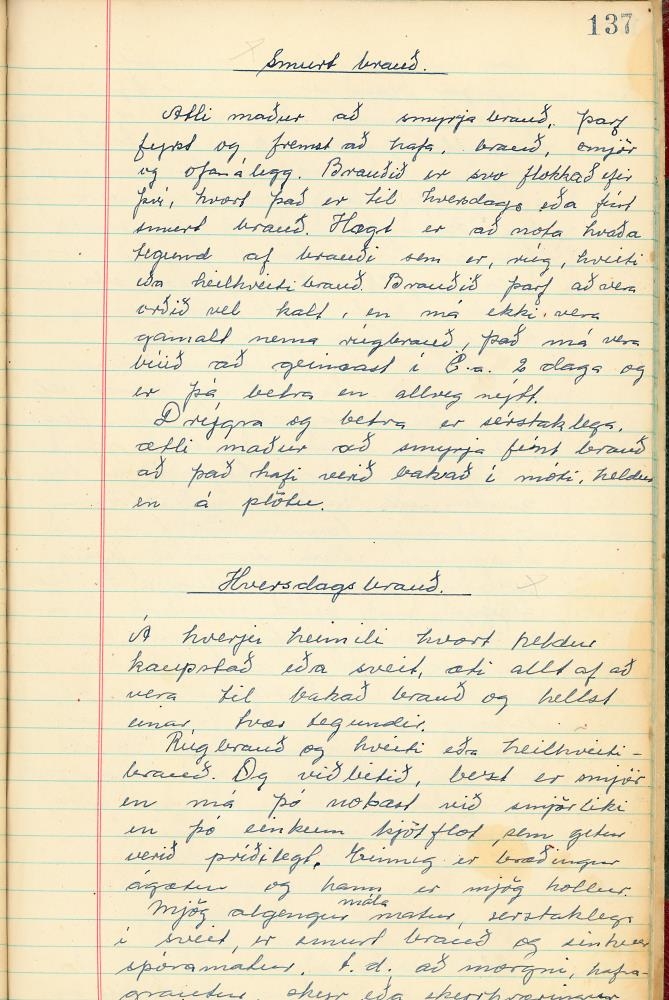 137
Smurt brauð.
Ætli maður að smyrja brauð, þarf
fyrst og fremst að hafa, brauð, smjör
og ofanálegg. Brauðið er svo flokkað eftir
því, hvort það er til hversdags eða fínt
smurt brauð. Hægt er að nota hvaða
tegund af brauði sem er, rúg, hveiti
eða heilhveitibrauð. Brauðið þarf að vera
orðið vel kalt, en má ekki vera
gamalt nema rúgbrauð, það má vera
búið að geimast í C.a. 2 daga og
er þá betra en allveg nýtt.
Drýgra og betra er sérstaklega,
ætli maður að smyrja fínt brauð
að það hafi verið bakað í móti, heldur
en á plötu.
Hversdagsbrauð.
Á hverju heimili hvort heldur
kaupstað eða sveit, æti allt af að
vera til bakað brauð og hellst
einar tvær tegundir.
Rúgbrauð og hveiti eða heilhveiti-
brauð. Og viðbitið, bezt er smjör
en má þó notast við smjörlíki
en þó einkum kjötflot, sem getur
verið príðilegt. Einnig er bræðingur
ágætur og hann er mjög hollur.
Mjög algengur mála matur, serstaklega
í sveit, er smurt brauð og
spónamatur. t.d. að morgni, hafra-
grautur, skyr eða skyrhræringur